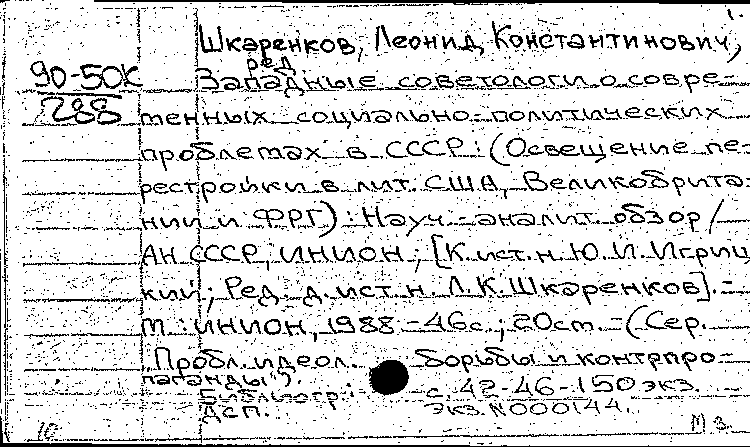 1.
Шкаренков, Леонид Константинович,
ред.
90-50К
288
Западные советологи о совре-
менных социально-политических
проблемах в СССР: (Освещение пе-
рестройки в лит. США, Великобрита-
нии и ФРГ): Науч.-аналит. обзор /
АН СССР, ИНИОН; [К.ист.н. Ю.И. Игриц-
кий; Ред. д.ист.н. Л.К. Шкаренков]. -
М.: ИНИОН, 1988 - 46с.; 20см. - (Сер.
"Пробл. идеол. борьбы и контрпро-
паганды").
Библиогр.: с. 42-46 - 150 экз.
ДСП. Экз. N000144.